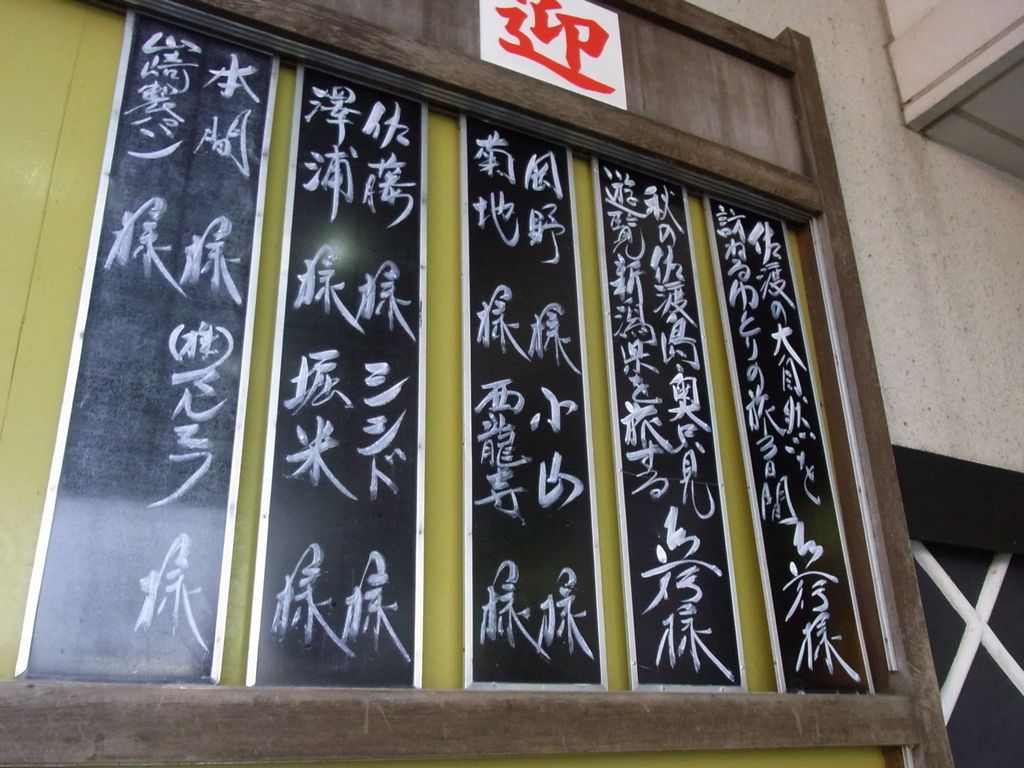 迎
佐渡の大自然を
訪ねるゆとりの旅3日間
秋の佐渡島・奥只見
遊覧新潟県を旅する
様
様
岡野 様
菊地 様
小山 様
西龍寺 様
佐藤 様
澤浦 様
シンド 様
堀米 様
本間 様
山崎製パン 様
㈱てんゆう 様